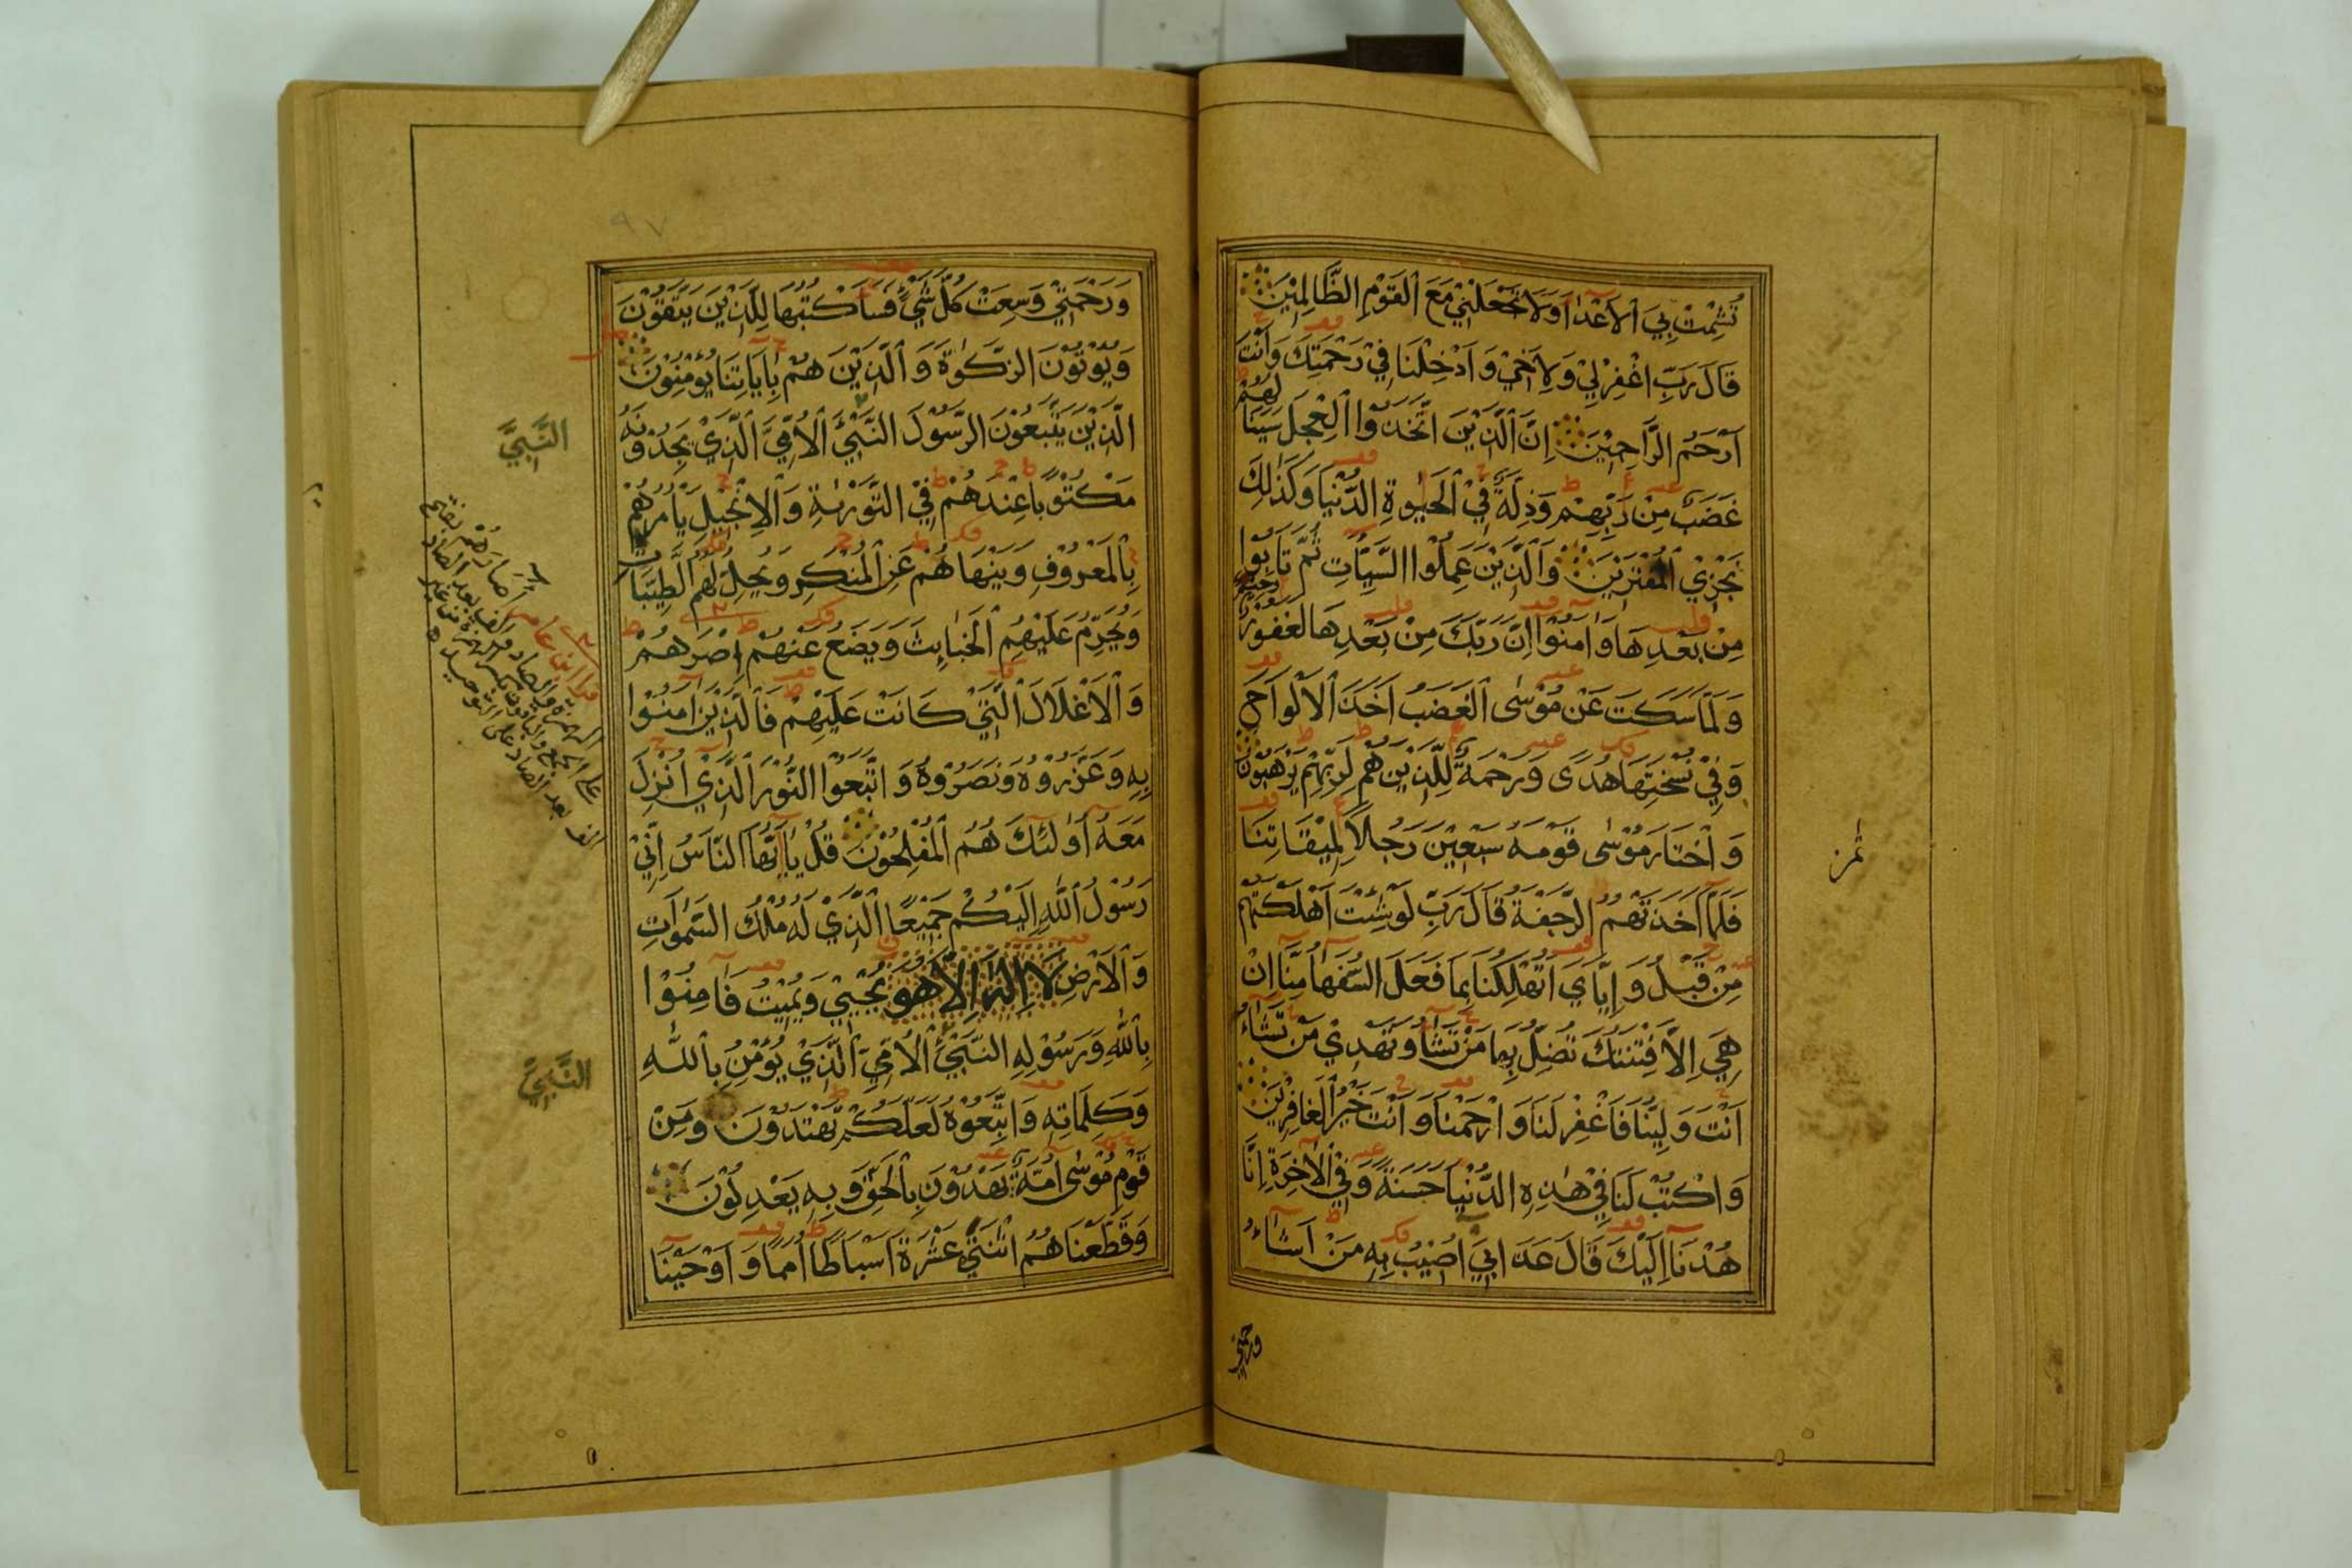 تُشْمِتْ بِيَ ٱلْاَعْدَآءَ وَلَا تَجْعَلْنِيْ مَعَ ٱلْقَوْمِ الظَّالِمِيْنَ
قَالَ رَبِّ اغْفِرْ لِيْ وَلِاَخِيْ وَاَدْخِلْنَا فِيْ رَحْمَتِكَ وَاَنْتَ
اَرْحَمُ الرَّاحِمِيْنَ اِنَّ الَّذِيْنَ اتَّخَذُوا الْعِجْلَ سَيَنَالُهُمْ
غَضَبٌ مِنْ رَبِّهِمْ وَذِلَّةٌ فِيْ الْحَيٰوةِ الدُّنْيَا وَكَذٰلِكَ
نَجْزِيْ الْمُفْتَرِيْنَ وَالَّذِيْنَ عَمِلُوا السَّيِّئَاتِ ثُمَّ تَابُوْا
مِنْ بَعْدِهَا وَاٰمَنُوْا اِنَّ رَبَّكَ مِنْ بَعْدِهَا لَغَفُوْرٌ رَحِيْمٌ
وَلَمَّا سَكَتَ عَنْ مُوْسٰى الْغَضَبُ اَخَذَ الْاَلْوَاحَ
وَفِيْ نُسْخَتِهَا هُدًى وَرَحْمَةٌ لِلَّذِيْنَ هُمْ لِرَبِّهِمْ يَرْهَبُوْنَ
وَاخْتَارَ مُوْسٰى قَوْمَهُ سَبْعِيْنَ رَجُلًا لِمِيْقَاتِنَا
فَلَمَّا اَخَذَتْهُمُ الرَّجْفَةُ قَالَ رَبِّ لَوْ شِئْتَ اَهْلَكْتَهُمْ
مِنْ قَبْلُ وَاِيَّايَ اَتُهْلِكُنَا بِمَا فَعَلَ السُّفَهَآءُ مِنَّا اِنْ
هِيَ اِلَّا فِتْنَتُكَ تُضِلُّ بِهَا مَنْ تَشَآءُ وَتَهْدِيْ مَنْ تَشَآءُ
اَنْتَ وَلِيُّنَا فَاغْفِرْ لَنَا وَارْحَمْنَا وَاَنْتَ خَيْرُ الْغَافِرِيْنَ
وَاكْتُبْ لَنَا فِيْ هٰذِهِ الدُّنْيَا حَسَنَةً وَفِيْ الْاٰخِرَةِ اِنَّا
هُدْنَا اِلَيْكَ قَالَ عَذَابِيْ اُصِيْبُ بِهِ مَنْ اَشَآءُ
ورحمتي
وَرَحْمَتِيْ وَسِعَتْ كُلَّ شَيْءٍ فَسَاَكْتُبُهَا لِلَّذِيْنَ يَتَّقُوْنَ
وَيُؤْتُوْنَ الزَّكٰوةَ وَالَّذِيْنَ هُمْ بِاٰيَاتِنَا يُؤْمِنُوْنَ
الَّذِيْنَ يَتَّبِعُوْنَ الرَّسُوْلَ النَّبِيَّ الْاُمِّيَّ الَّذِيْ يَجِدُوْنَهُ
مَكْتُوْبًا عِنْدَهُمْ فِيْ التَّوْرٰىةِ وَالْاِنْجِيْلِ يَاْمُرُهُمْ
بِالْمَعْرُوْفِ وَيَنْهَاهُمْ عَنِ الْمُنْكَرِ وَيُحِلُّ لَهُمُ الطَّيِّبَاتِ
وَيُحَرِّمُ عَلَيْهِمُ الْخَبَائِثَ وَيَضَعُ عَنْهُمْ اِصْرَهُمْ
وَالْاَغْلَالَ الَّتِيْ كَانَتْ عَلَيْهِمْ فَالَّذِيْنَ اٰمَنُوْا
بِهِ وَعَزَّرُوْهُ وَنَصَرُوْهُ وَاتَّبَعُوْا النُّوْرَ الَّذِيْ اُنْزِلَ
مَعَهُ اُولٰئِكَ هُمُ الْمُفْلِحُوْنَ قُلْ يَا اَيُّهَا النَّاسُ اِنِّيْ
رَسُوْلُ اللّٰهِ اِلَيْكُمْ جَمِيْعًا الَّذِيْ لَهُ مُلْكُ السَّمٰوَاتِ
وَالْاَرْضِ لَا اِلٰهَ اِلَّا هُوَ يُحْيِيْ وَيُمِيْتُ فَاٰمِنُوْا
بِاللّٰهِ وَرَسُوْلِهِ النَّبِيِّ الْاُمِّيِّ الَّذِيْ يُؤْمِنُ بِاللّٰهِ
وَكَلِمَاتِهِ وَاتَّبِعُوْهُ لَعَلَّكُمْ تَهْتَدُوْنَ وَمِنْ
قَوْمِ مُوْسٰى اُمَّةٌ يَهْدُوْنَ بِالْحَقِّ وَبِهِ يَعْدِلُوْنَ
وَقَطَّعْنَاهُمُ اثْنَتَيْ عَشْرَةَ اَسْبَاطًا اُمَمًا وَاَوْحَيْنَا
النَّبِيَّ
النَّبِيِّ
٩٧